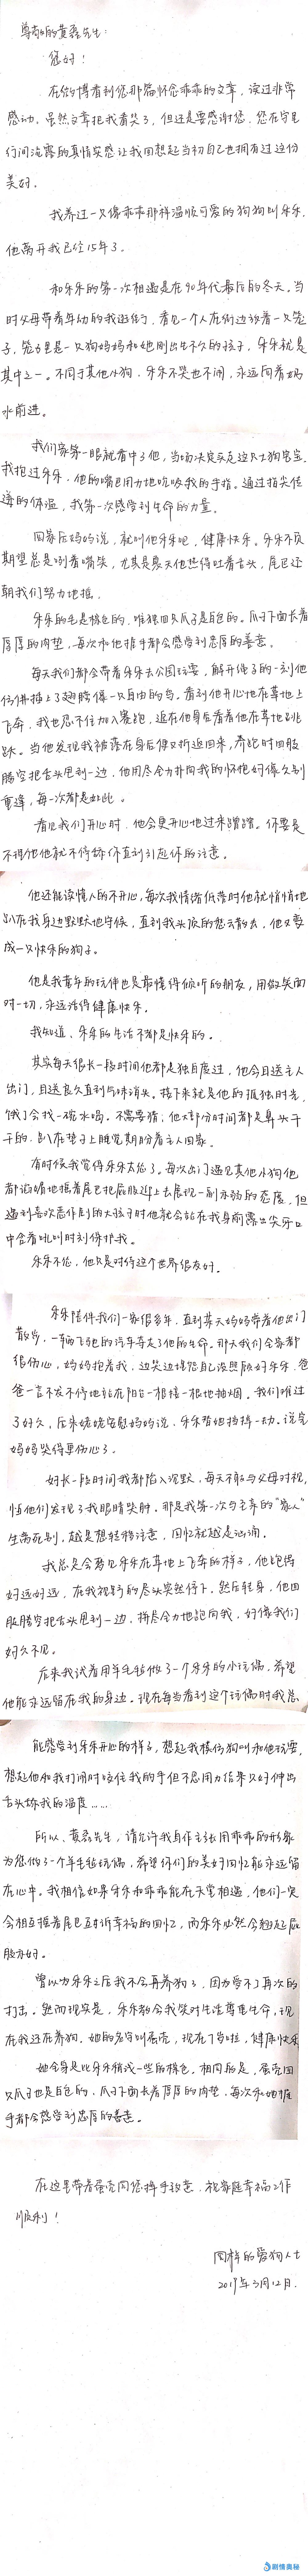 尊敬的黄磊先生:
您好!
在微博看到您那篇怀念乖乖的文章,读过非常
感动。虽然文章把我看哭了,但还是要感谢您,您在字里
行间流露的真情实感让我回想起当初自己也拥有过这份
美好。
我养过一只像乖乖那样温顺可爱的狗狗叫乐乐,
他离开我已经15年了。
和乐乐的第一次相遇是在90年代最后的冬天。当
时父母带着年幼的我逛街,看见一个人在街边放着一只笼
子,笼子里是一只狗妈妈和她刚出生不久的孩子,乐乐就是
其中之一。不同于其他小狗,乐乐不哭也不闹,永远向着奶
水前进。
我们家第一眼就看中了他,当场决定买走这只小狗宝宝。
我抱过乐乐,他的嘴巴用力地吃吸我的手指。通过指尖传
递的体温,我第一次感受到生命的力量。
回家后妈妈说,就叫他乐乐吧,健康快乐。乐乐不负
期望总是咧着嘴笑,尤其是夏天他热得吐着舌头,尾巴还
朝我们努力地摇。
乐乐的毛是棕色的,唯独四只爪子是白色的。爪子下面长着
厚厚的肉垫,每次和他握手都会感受到忠厚的善意。
每天我们都会带着乐乐去公园玩耍,解开绳子的一刻他
仿佛插上了翅膀像一只自由的鸟。看到他开心地在草地上
飞奔,我也忍不住加入赛跑,追在他身后看着他在草地跳
跃。当他发现我被落在身后便又折返回来,奔跑时四肢
腾空把舌头甩到一边,他用尽全力扑向我的怀抱好像久别
重逢,每一次都是如此。
看见我们开心时,他会更开心地过来蹭蹭。你要是
不理他他就不停舔你直到引起你的注意。
他还能读懂人的不开心,每次我情绪低落时他就悄悄地
趴在我身边默默地守候,直到我头顶的愁云散去,他又变
成一只快乐的狗子。
他是我童年的玩伴也是最懂得倾听的朋友,用微笑面
对一切,永远活得健康快乐。
我知道,乐乐的生活不都是快乐的。
其实每天很长一段时间他都是独自度过,他会目送主人
出门,目送良久直到气味消失。接下来就是他的孤独时光,
饿了会找一碗水喝。不需要猜,他大部份时间都是鼻头干
干的,趴在垫子上睡觉期盼着主人回家。
有时候我觉得乐乐太怂了。每次出门遇见其他小狗他
都谄媚地摇着尾巴把屁股迎上去展现一副求饶的态度,但
遇到喜欢恶作剧的大孩子时他就会站在我身前露出尖牙口
中含着吼叫时刻保护我。
乐乐不怂,他只是对待这个世界很友好。
乐乐陪伴我们一家很多年,直到某天妈妈带着他出门
散步,一辆飞驰的汽车夺走了他的生命。那天我们全家都
很伤心,妈妈抱着我,边哭边埋怨自己没照顾好乐乐,爸
爸一言不发不停地站在阳台一根接一根地抽烟。我们难过
了好久,后来姥姥安慰妈妈说,乐乐帮她挡掉一劫。说完
妈妈哭得更伤心了。
好长一段时间我都陷入沉默,每天不敢与父母对视,
怕他们发现了我眼睛哭肿。那是我第一次与至亲的“家人”
生离死别,越是想转移注意,回忆就越是汹涌。
我总是会看见乐乐在草地上飞奔的样子,他跑得
好远好远,在我视野的尽头突然停下,然后转身,他四
肢腾空把舌头甩到一边,拼尽全力地跑向我,好像我们
好久不见。
后来我试着用羊毛毡做了一个乐乐的小玩偶,希望
他能永远留在我的身边。现在每当看到这个玩偶时我总
能感受到乐乐开心的样子,想起我模仿狗叫和他玩耍,
想起他和我打闹时咬住我的手但不忍用力结果只好伸出
舌头舔我的温度……
所以,黄磊先生,请允许我自作主张用乖乖的形象
为您做了一个羊毛毡玩偶,希望你们的美好回忆能永远留
在心中。我相信如果乐乐和乖乖能在天堂相遇,他们一定
会相互摇着尾巴互诉幸福的回忆,而乐乐必然会翘起屁
股求好。
曾以为乐乐之后我不会再养狗了,因为受不了再次的
打击。然而现实是,乐乐教会我笑对生活尊重生命,现
在我还在养狗,她的名字叫蛋壳,现在7岁啦,健康快乐
她全身是比乐乐稍浅一些的棕色,相同的是,蛋壳四
只爪子也是白色的,爪子下面长着厚厚的肉垫,每次和她握
手都会感受到忠厚的善意。
在这里带着蛋壳向您挥手致意,祝家庭幸福工作
顺利!
同样的爱狗人士
2019年3月12日.
剧情奥秘